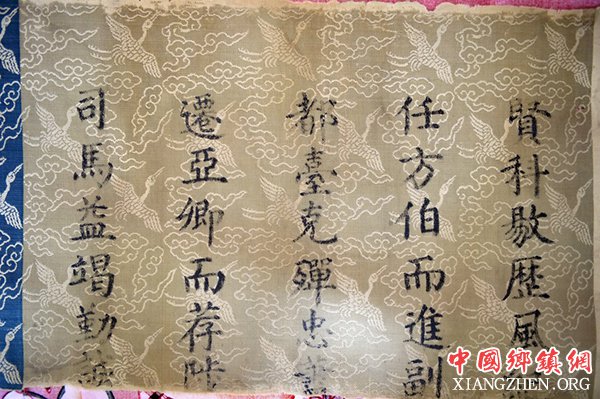 賢科敭歷風
任方伯而進副
都臺克殫忠
遷亞卿而荐階
司馬益竭勤
中國鄉鎮網
XIANGZHEN.ORG